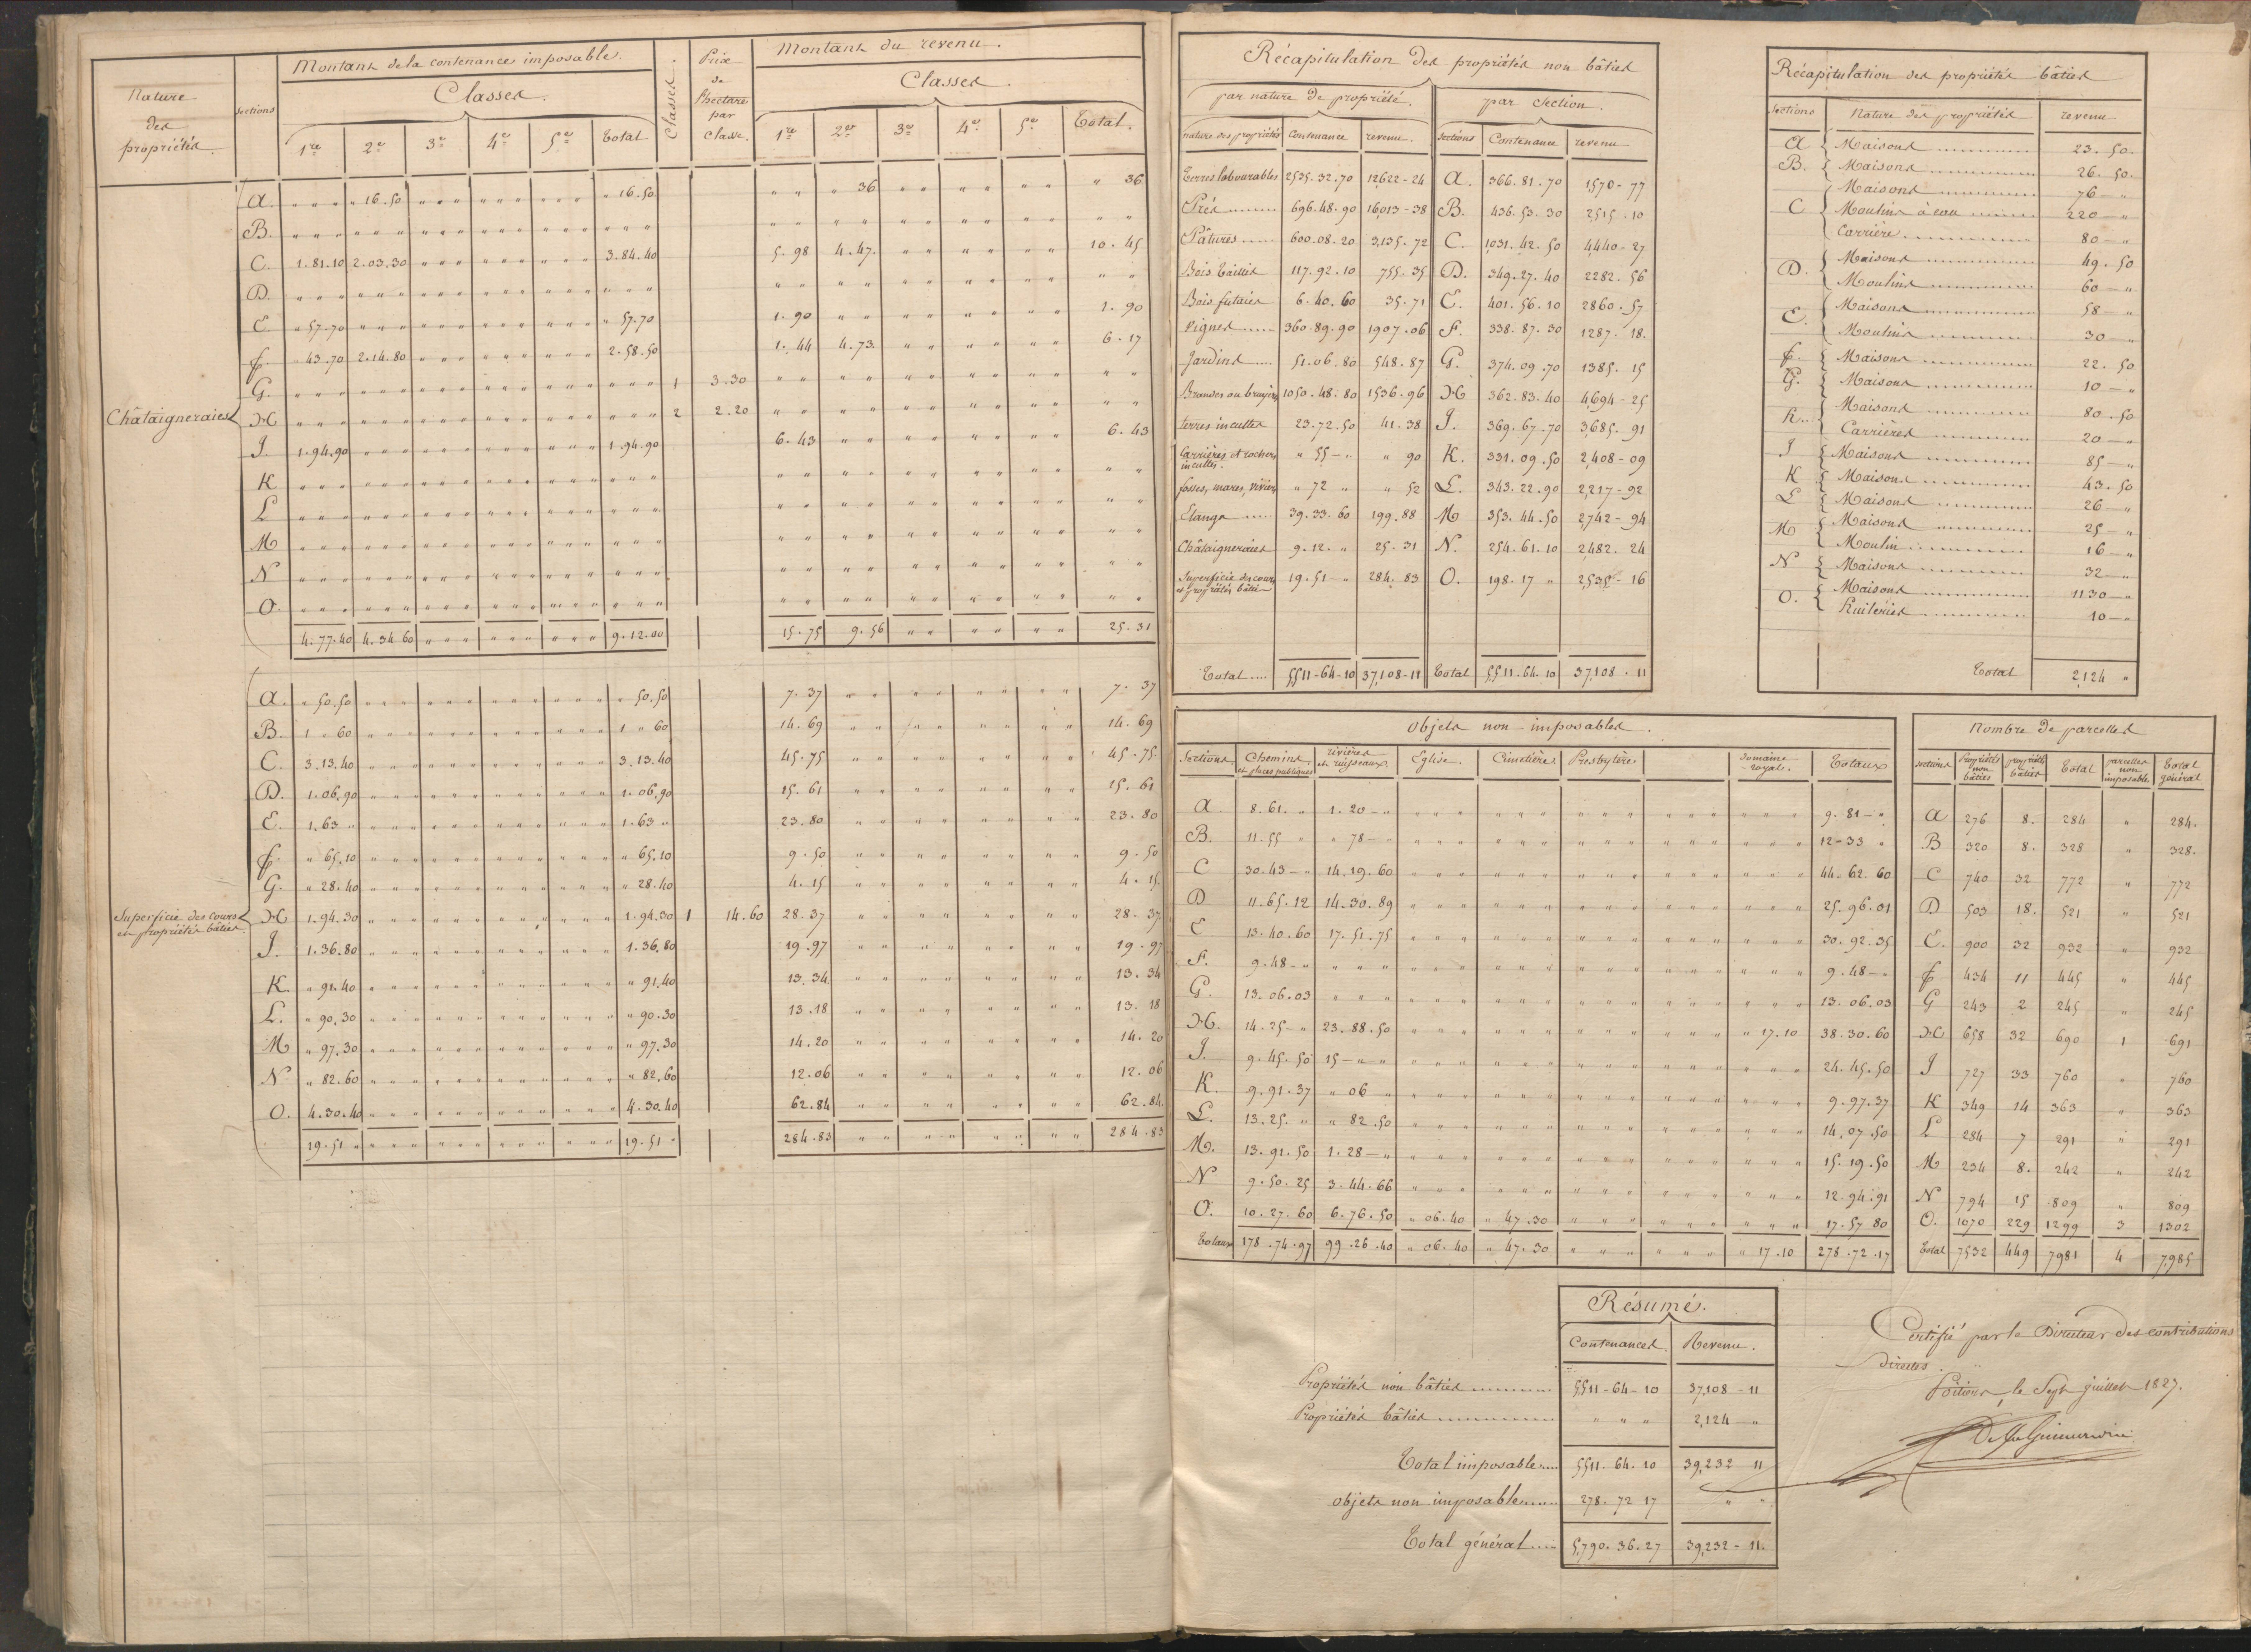 Nature des propriétés
Sections
Montant de la contenance imposable.
Classes.
1re 2e 3e 4e 5e Total
Classes.
Prix de l'hectare par Classe.
Montant du revenu.
Classes.
1re 2e 3e 4e 5e Total.
Châtaigneraies
A. " " " " 16.50 " " " " " " " " " " 16.50 " " " 36 " " " " " " " 36
B. " " " " " " " " " " " " " " " " " " " " " " " " " " " "
C. 1.81.10 2.03.30 " " " " " " " " " 3.84.40 5.98 4.47. " " " " " " 10.45
D. " " " " " " " " " " " " " " " " " " " " " " " " " " " "
E. " 57.70 " " " " " " " " " " " " " 57.70 1.90 " " " " " " " " 1.90
F. " 43.70 2.14.80 " " " " " " " " " 2.58.50 1.44 4.73. " " " " " " 6.17
G. " " " " " " " " " " " " " " " " " " 1 3.30 " " " " " " " " " " " "
H " " " " " " " " " " " " " " " " " " 2 2.20 " " " " " " " " " " " "
J. 1.94.90 " " " " " " " " " " " " 1.94.90 6.43 " " " " " " " " 6.43
K " " " " " " " " " " " " " " " " " " " " " " " " " " " "
L " " " " " " " " " " " " " " " " " " " " " " " " " " " "
M " " " " " " " " " " " " " " " " " " " " " " " " " " " "
N " " " " " " " " " " " " " " " " " " " " " " " " " " " "
O. " " " " " " " " " " " " " " " " " " " " " " " " " " " "
4.77.40 4.34.60 " " " " " " " " " 9.12.00 15.75 9.56 " " " " " " 25.31
Superficie des cours et propriétés bâties
A. " 50.50 " " " " " " " " " " " " " 50.50 7.37 " " " " " " " " 7.37
B. 1 " 60 " " " " " " " " " " " " 1 " 60 14.69 " " " " " " " " 14.69
C. 3.13.40 " " " " " " " " " " " " 3.13.40 45.75 " " " " " " " " 45.75
D. 1.06.90 " " " " " " " " " " " " 1.06.90 15.61 " " " " " " " " 15.61
E. 1.63 " " " " " " " " " " " " " 1.63 " 23.80 " " " " " " " " 23.80
F. " 65.10 " " " " " " " " " " " " " 65.10 9.50 " " " " " " " " 9.50
G. " 28.40 " " " " " " " " " " " " " 28.40 4.15 " " " " " " " " 4.15
H 1.94.30 " " " " " " " " " " " " 1.94.30 1 14.60 28.37 " " " " " " " " 28.37
J. 1.36.80 " " " " " " " " " " " " 1.36.80 19.97 " " " " " " " " 19.97
K. " 91.40 " " " " " " " " " " " " " 91.40 13.34 " " " " " " " " 13.34
L. " 90.30 " " " " " " " " " " " " " 90.30 13.18 " " " " " " " " 13.18
M " 97.30 " " " " " " " " " " " " " 97.30 14.20 " " " " " " " " 14.20
N " 82.60 " " " " " " " " " " " " " 82.60 12.06 " " " " " " " " 12.06
O. 4.30.40 " " " " " " " " " " " " 4.30.40 62.84 " " " " " " " " 62.84
19.51 " " " " " " " " " " " " " 19.51 " 284.83 " " " " " " " " 284.83
Récapitulation des propriétés non bâties
par nature de propriété. par Section.
nature des propriétés Contenance revenu. Sections Contenance revenu
Terres labourables 2535.32.70 12,622-24 A. 366.81.70 1,570-77
Prés 696.48.90 16,013-38 B. 436.53.30 2515.10
Pâtures 600.08.20 3,135.72 C. 1,031.42.50 4,440-27
Bois taillis 117.92.10 755.35 D. 349.27.40 2282.56
Bois futaies 6.40.60 35.71 E. 401.56.10 2860.57
Vignes 360.89.90 1907.06 F. 338.87.30 1287.18.
Jardins 51.06.80 548.87 G. 374.09.70 1385.15
Brandes ou bruyères 1050.48.80 1536.96 H 362.83.40 4,694-25
terres incultes 23.72.50 41.38 J. 369.67.70 3,685.91
Carrières et rochers incultes. " 55 - " " 90 K. 331.09.50 2,408-09
fosses, mares, viviers " 72 " " 52 L. 343.22.90 2,217-92
Etangs 39.33.60 199.88 M 353.44.50 2,742-94
Châtaigneraies 9.12. " 25.31 N. 254.61.10 2482.24
Superficie des cours et propriétés bâties 19.51 - " 284.83 O. 198.17 " 2,535-16
Total 5,511-64-10 37,108-11 Total 5,511.64.10 37,108.11
Récapitulation des propriétés bâties
Sections Nature des propriétés revenu
A Maisons 23.50.
B. Maisons 26.50.
C Maisons 76 - "
Moulins à eau 220 - "
Carrière 80 - "
D. Maisons 49.50
Moulins 60 - "
E. Maisons 58 - "
Moulins 30 - "
F. Maisons 22.50
G. Maisons 10 - "
H. Maisons 80.50
Carrières 20 - "
J Maisons 85 - "
K Maisons 43.50
L Maisons 26 - "
M Maisons 25 - "
Moulin 16 - "
N Maisons 32 - "
O. Maisons 1130 - "
Tuileries 10 - "
Total 2,124 "
Objets non imposables.
Sections. Chemins et places publiques rivières et ruisseaux. Eglise. Cimetière Presbytère Domaine royal. Totaux
A 8.61. " 1.20 - " " " " " " " " " " " " " " " " 9.81 - "
B. 11.55 " " 78 - " " " " " " " " " " " " " " " " 12-33 "
C 30.43 - " 14.19.60 " " " " " " " " " " " " " " " 44.62.60
D 11.65.12 14.30.89 " " " " " " " " " " " " " " " 25.96.01
E 13.40.60 17.51.75 " " " " " " " " " " " " " " " 30.92.35
F. 9.48 - " " " " " " " " " " " " " " " " " " 9.48 - "
G. 13.06.03 " " " " " " " " " " " " " " " " " " 13.06.03
H. 14.25 - " 23.88.50 " " " " " " " " " " " " " 17.10 38.30.60
J. 9.45.50 15 - " " " " " " " " " " " " " " " " " 24.45.50
K. 9.91.37 " 06 - " " " " " " " " " " " " " " " " 9.97.37
L. 13.25. " " 82.50 " " " " " " " " " " " " " " " 14.07.50
M. 13.91.50 1.28 - " " " " " " " " " " " " " " " " 15.19.50
N 9.50.25 3.44.66 " " " " " " " " " " " " " " " 12.94.91
O. 10.27.60 6.76.50 " 06.40 " 47.30 " " " " " " " " " 17.57 80
Totaux 178.74.97 99.26.40 " 06.40 " 47.30 " " " " " " " 17.10 278.72.17
Nombre de parcelles
sections Propriétés non bâties propriétés bâties Total parcelles non imposables Total général
A 276 8. 284 " 284.
B 320 8. 328 " 328.
C 740 32 772 " 772
D 503 18. 521 " 521
E. 900 32 932 " 932
F 434 11 445 " 445
G 243 2 245 " 245
H 658 32 690 1 691
J 727 33 760 " 760
K 349 14 363 " 363
L 284 7 291 " 291
M 234 8. 242 " 242
N 794 15 809 " 809
O. 1070 229 1299 3 1302
Total 7532 449 7981 4 7,985
Résumé.
Contenances. Revenu.
Propriétés non bâties 5,511-64-10 37,108-11
Propriétés bâties " " " 2,124 "
Total imposable 5511.64.10 39,232 11
objets non imposables 278.72 17 " "
Total général 5,790.36.27 39,232-11.
Certifié par le Directeur des contributions
Directes.
Poitiers, le Sept juillet 1827.